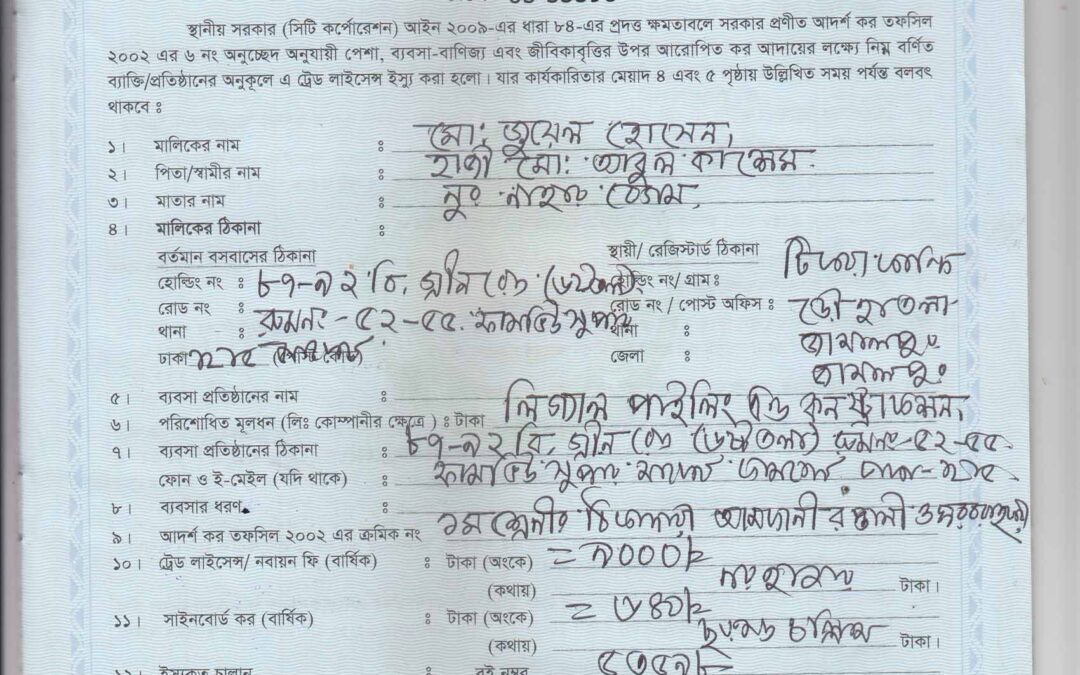 স্থানীয় সরকার (সিটি কর্পোরেশন) আইন ২০০৯-এর ধারা ৮৪-এর প্রদত্ত ক্ষমতাবলে সরকার প্রণীত আদর্শ কর তফসিল
২০০২ এর ৬ নং অনুচ্ছেদ অনুযায়ী পেশা, ব্যবসা-বাণিজ্য এবং জীবিকাবৃত্তির উপর আরোপিত কর আদায়ের লক্ষ্যে নিম্ন বর্ণিত
ব্যাক্তি/প্রতিষ্ঠানের অনুকূলে এ ট্রেড লাইসেন্স ইস্যু করা হলো। যার কার্যকারিতার মেয়াদ ৪ এবং ৫ পৃষ্ঠায় উল্লিখিত সময় পর্যন্ত বলবৎ
থাকবে ঃ
১। মালিকের নাম ঃ মোঃ জুয়েল হোসেন,
২। পিতা/স্বামীর নাম ঃ হাজী মোঃ আবুল কাশেম
৩। মাতার নাম ঃ নুর নাহার বেগম,
৪। মালিকের ঠিকানা ঃ
বর্তমান বসবাসের ঠিকানা স্থায়ী/ রেজিস্টার্ড ঠিকানা
হোল্ডিং নং ঃ ৮৭-৯২ বি, গ্রীন রোড হোল্ডিং নং/ গ্রাম ঃ
রোড নং ঃ রুমনং-৫২-৫৫ সুপার রোড নং / পোস্ট অফিস ঃ
থানা ঃ থানা ঃ জামালপুর
ঢাকা জেলা ঃ জামালপুর
৫। ব্যবসা প্রতিষ্ঠানের নাম ঃ পাইলিং এন্ড কনস্ট্রাকশন,
৬। পরিশোধিত মূলধন (লিঃ কোম্পানীর ক্ষেত্রে) ঃ টাকা
৭। ব্যবসা প্রতিষ্ঠানের ঠিকানা ঃ ৮৭-৯২ বি, গ্রীন রোড রুমনং-৫২-৫৫
ফোন ও ই-মেইল (যদি থাকে) ঃ সুপার মার্কেট
৮। ব্যবসার ধরণ ঃ
৯। আদর্শ কর তফসিল ২০০২ এর ক্রমিক নং ১ম শ্রেনীর ঠিকাদারী আমদানী রপ্তানী ও সরবরাহকারী
১০। ট্রেড লাইসেন্স/ নবায়ন ফি (বার্ষিক) ঃ টাকা (অংকে) = ৯০০০/-
(কথায়) নয় হাজার টাকা।
১১। সাইনবোর্ড কর (বার্ষিক) ঃ টাকা (অংকে) = ৬৪০/-
(কথায়) ছয়শত চল্লিশ টাকা।